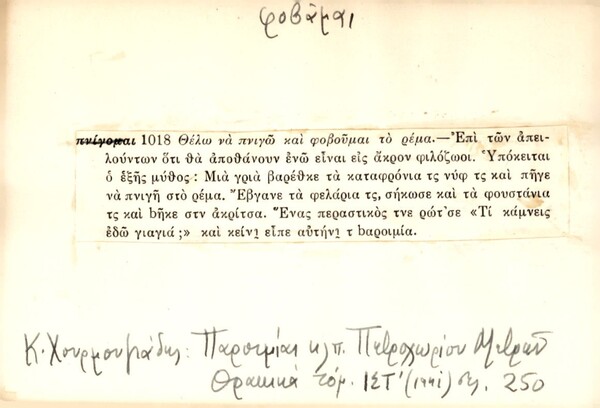 φοβᾶμαι
πνίγομαι 1018 Θέλω νὰ πνιγῶ καὶ φοβοῦμαι τὸ ρέμα.—Ἐπὶ τῶν ἀπει-
λούντων ὅτι θὰ ἀποθάνουν ἐνῶ εἶναι εἰς ἄκρον φιλόζωοι. Ὑπόκειται
ὁ ἑξῆς μύθος: Μιὰ γριὰ βαρέθκε τὰ καταφρόνια τς νύφ τς καὶ πῆγε
νὰ πνιγῆ στὸ ρέμα. Ἔβγανε τὰ φελάρια τς, σήκωσε καὶ τὰ φουστάνια
τς καὶ bῆκε στν ἀκρίτσα. Ἕνας περαστικὸς τνε ρώτ'σε «Τί κάμνεις
ἐδῶ γιαγιά;» καὶ κείνῃ εἶπε αὐτήνῃ τ bαροιμία.
Κ. Χουρμουζιάδης: Παροιμίαι κλπ. Πετροχωρίου Μετρῶν
Θρακικά τόμ. ΙΣΤ' (1941) σελ. 250